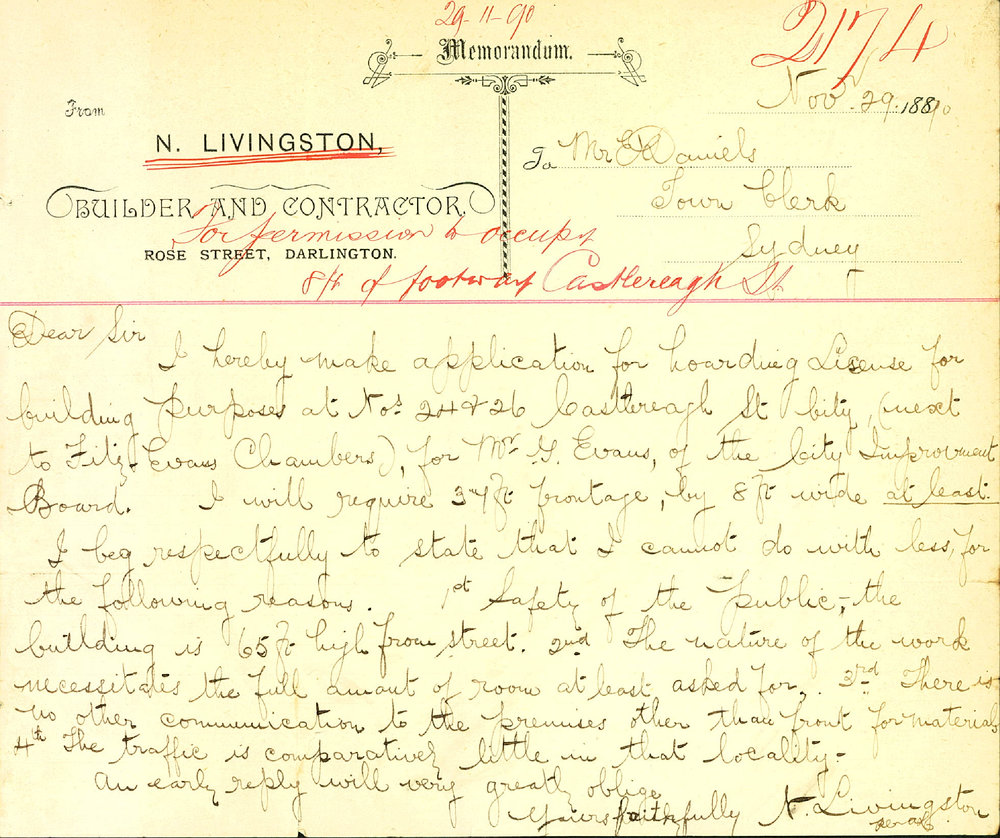 29-11-90
2174
Memorandum.
Nov. 29. 1890
From
N. LIVINGSTON,
To Mr E Daniels
BUILDER AND CONTRACTOR,
Town Clerk
For permission to occupy
ROSE STREET, DARLINGTON.
Sydney
8 ft of footway Castlereagh St.
Dear Sir
I hereby make application for hoarding Lisense for
building purposes at Nos 24 & 26 Castlereagh St City (next
to Fitz-Evans Chambers), for Mr G. Evans, of the City Improvment
Board. I will require 37 ft frontage, by 8 ft wide at least.
I beg respectfully to state that I cannot do with less, for
the following reasons. 1st Safety of the Public,- the
building is 65 ft high from street. 2nd The nature of the work
necessitates the full amount of room at least asked for,. 3rd There is
no other communication to the premises other than front for materials
4th The traffic is comparatively little in that locality-
An early reply will very greatly oblige
Yours faithfully N. Livingston